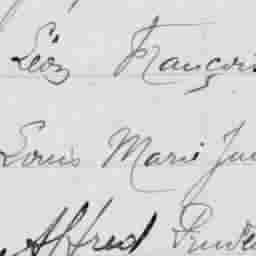 Léon François
Louis Marie
Alfred